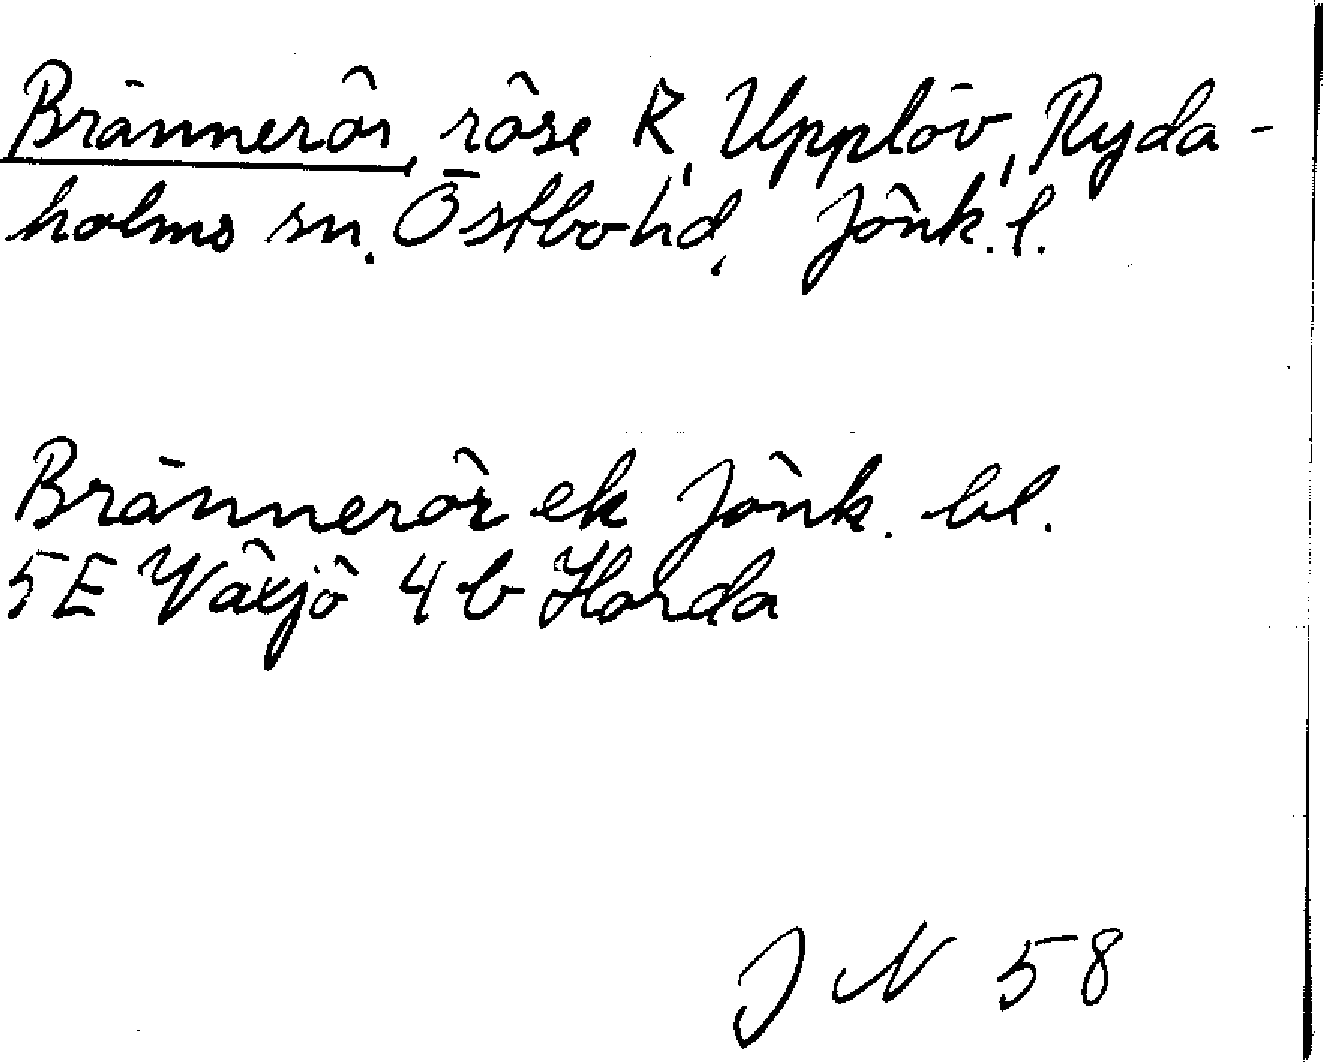 Brännerör, röse R, Upplöv, Ryda-
holms sn. Östbo hd, Jönk. l.
Brännerör ek Jönk. bl.
5E Växjö 4b Horda
J N 58